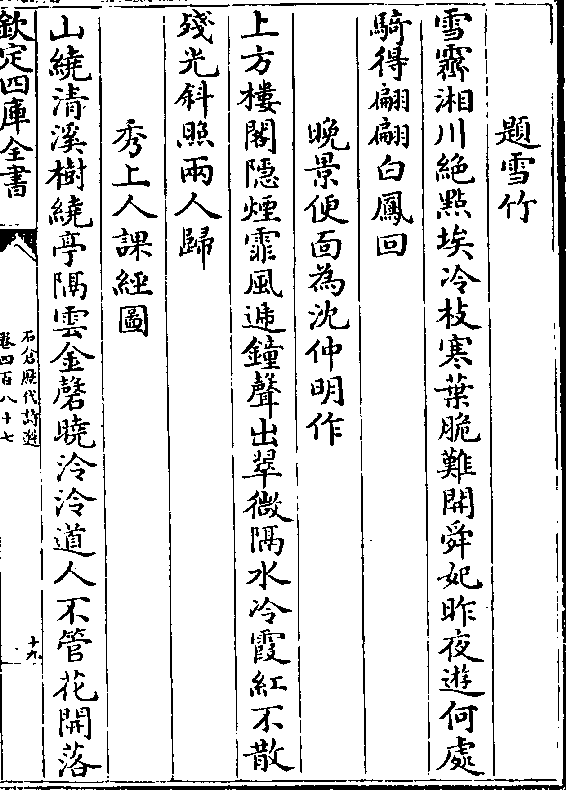 題雪竹
雪霽湘川絶點埃冷枝寒葉脆難開舜妃昨夜遊何處
騎得翩翩白鳳回
晚景便面為沈仲明作
上方樓閣隠煙霏風遞鐘聲出翠微隔水冷霞紅不散
殘光斜照兩人歸
秀上人課經圖
山繞清溪樹繞亭隔雲金磬曉泠泠道人不管花開落
欽定四庫全書
石倉歷代詩選
卷四百八十七
十九